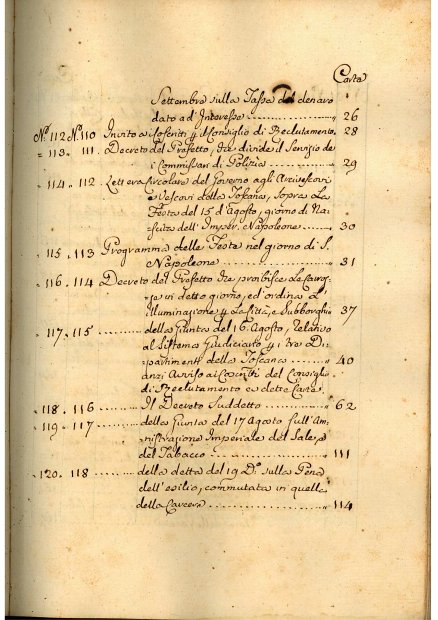 Carta
Settembre sulla Tassa del denaro
dato ad Interesse ............ „ 26
N.º 112. N.º 110 Invito a' Coscritti p. il Consiglio di Reclutamento. 28
" 113. 111 Decreto del Prefetto, che divide il Servizio de'
Commissari di Polizia ......... „ 29
" 114. 112 Lettera Circolare del Governo agli Arcivescovi
e Vescovi della Toscana, sopra la
Festa del 15 d'Agosto, giorno di Na-
scita dell'Imper. Napoleone ..... „ 30
" 115. 113 Programma delle Feste nel giorno di S.
Napoleone ............ „ 31
" 116. 114 Decreto del Prefetto che proibisce le Carroz-
ze in detto giorno, ed ordina l'
Illuminazione p. la Città, e Subborghi „ 37
" 117. 115 ........ della Giunta del 16. Agosto, relativo
al Sistema Giudiciario p. i tre Di-
partimenti della Toscana ....... „ 40
anzi Avviso ai Coscritti del Consiglio
di Reclutamento e dette Carte
" 118. 116 ........ Il Decreto Suddetto ........ „ 62
" 119. 117 ........ della Giunta del 17 Agosto sull'Am-
ministrazione Imperiale del Sale, e
del Tabacco ............ „ 111
" 120. 118 ........ della detta del 19 D.º sulla Pena
dell'esilio, commutata in quella
della Carcere ............ „ 114